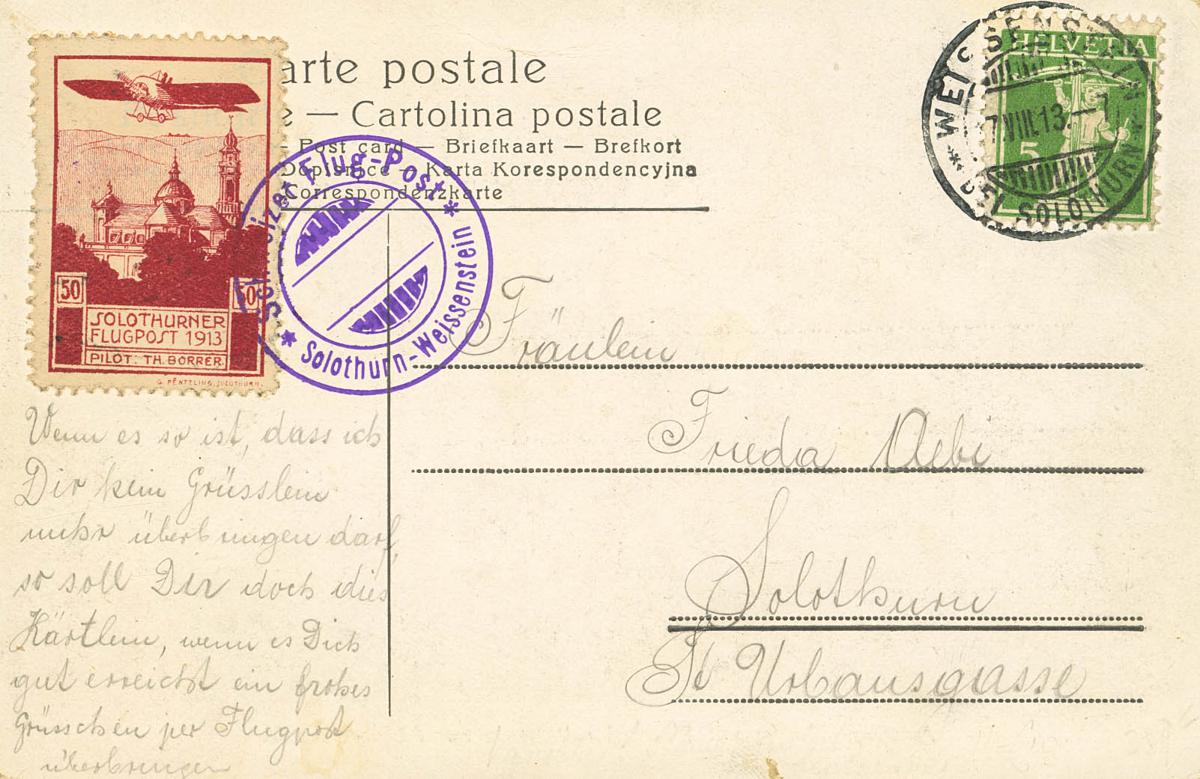 arte postale
e — Cartolina postale
- Post card — Briefkaart — Brefkort
Dopisnice - Karta Korespondencyjna
Correspondenzkarte
50 50
SOLOTHURNER
FLUGPOST 1913
PILOT: TH. BORRER
Schweizer Flug-Post
* Solothurn-Weissenstein *
HELVETIA
5
* WEISSENSTEIN *
7.VIII.13.-7
(SOLOTHURN)
Wenn es so ist, dass ich
Dir kein Grüsslein
mehr überbringen darf,
so soll Dir doch dies
Kärtlein, wenn es Dich
gut erreicht ein frohes
Grüsschen per Flugpost
überbringen
Fräulein
Frieda Aebi
Solothurn
St Urbansgasse